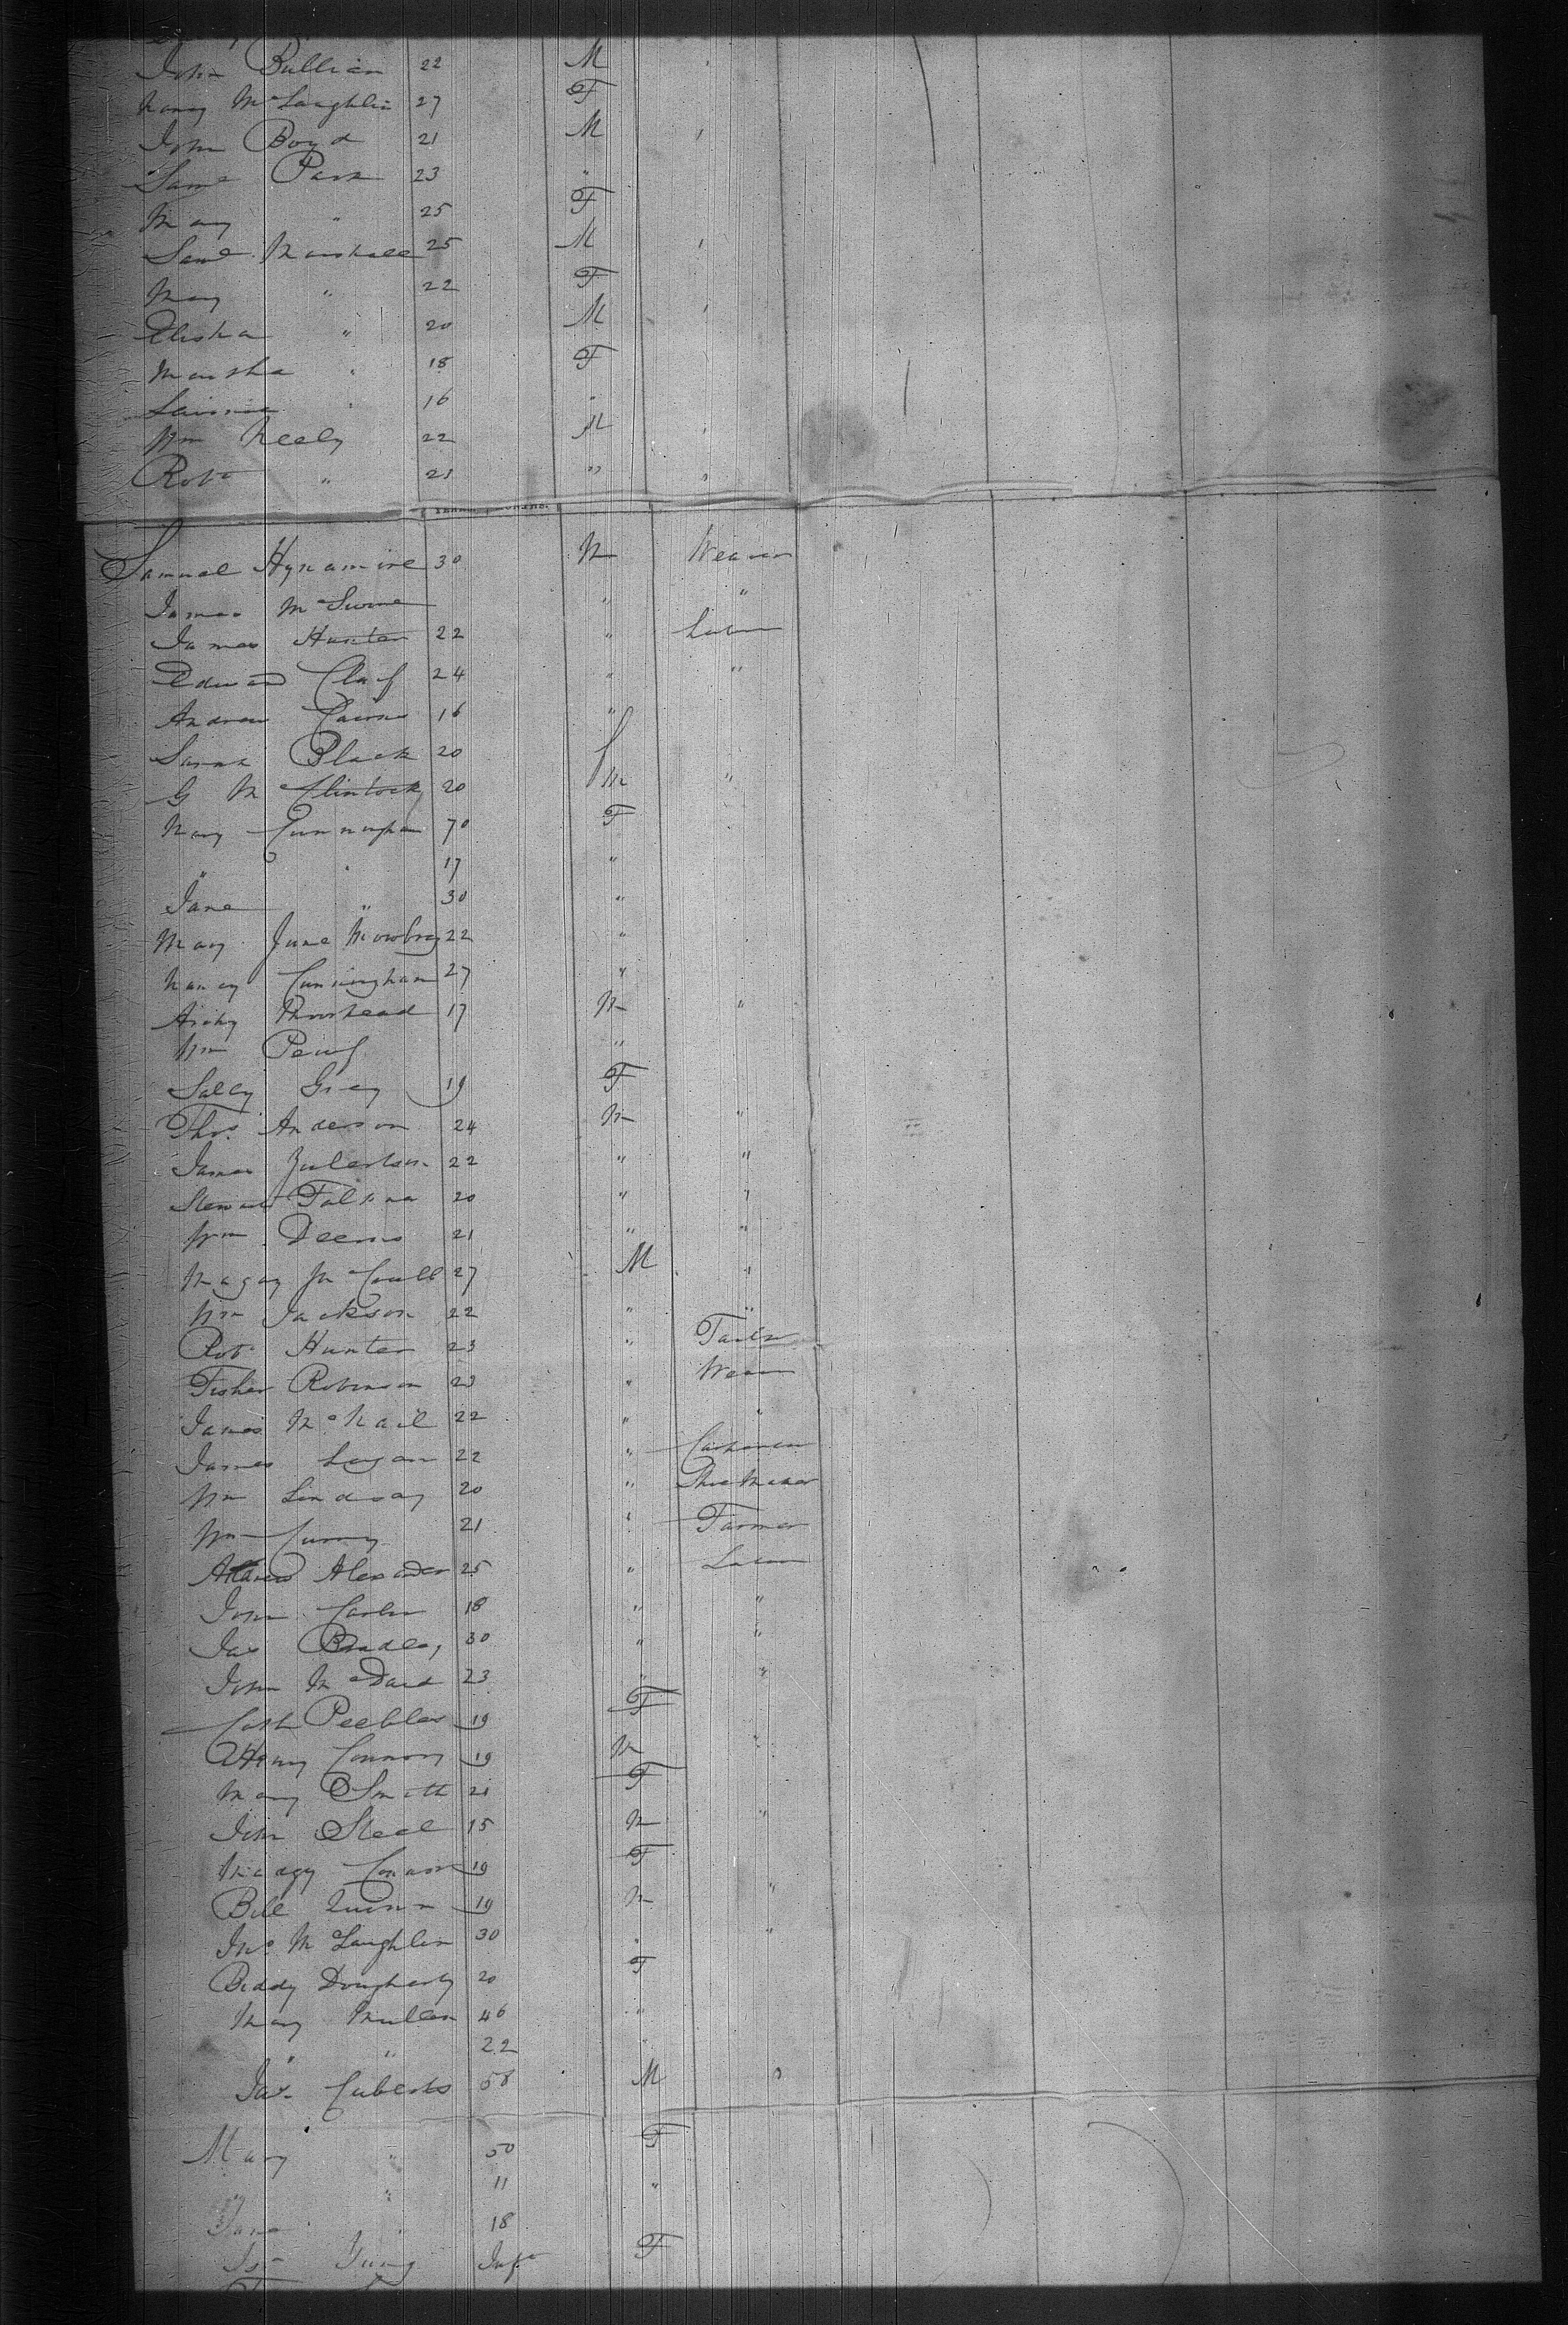 John Bullian 22 M
Nancy McLaughlin 27 F
John Boyd 21 M "
Saml Park 23 "
Mary " 25 F
Saml Marshall 25 M "
Mary " 22 F
Elisha " 20 M "
Martha " 18 F
16 "
Wm Neely 22 M "
Robt " 21 " "
Samuel Hynamire 30 M Weaver
James McSwine " "
James Hunter 22 " Labor
Edward 24 " "
Andrew Cairns 16 "
Sarah Black 20 F
G McClintock 20 M "
Mary Cunningham 70 F
" " 17 "
Jane " 30 "
Mary Jane Mowbray 22 "
Nancy Cunningham 27 "
Archy Moorhead 17 M "
Wm "
Sally Grey 19 F
Thos. Anderson 24 M "
James 22 " "
Stewart 20 " "
Wm Deems 21 " "
27 M "
Wm Jackson 22 " "
Robt Hunter 23 " Tailor
Fisher Robinson 23 " Weaver
James McNail 22 " "
James Logan 22 " Carpenter
Wm Lindsay 20 " Shoemaker
Wm Curry 21 " Farmer
Andrew Alexander 25 " Labour
John Carlin 18 " "
Jas Bradley 30 " "
John McDaid 23 " "
Cath Peebles 19 F
Henry Connory 19 M "
Mary Smith 21 F
John Steel 15 M "
Madgy 19 F
Bill Quinn 19 M "
Jno McLaughlin 30 " "
Biddy Dougherty 20 F
Mary Mullen 46 "
" " 22 "
Jas. 58 M "
Mary " 50 F
" " 11 "
Jane " 18
Young Inft F